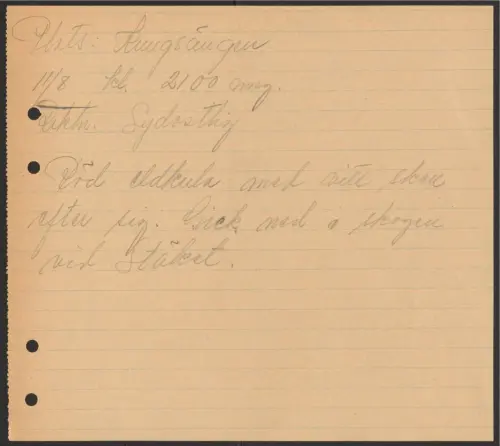 Plats: Kungsängen
11/8 kl. 2100
Riktn. Sydostlig
Röd eldkula med vitt sken
efter sig. Gick ned i skogen
vid Stäket.